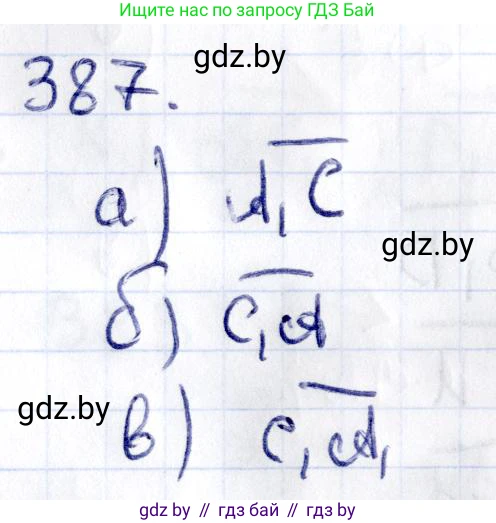 Ищите нас по запросу ГДЗ Бай
gdz.by
387.
а) A₁C
gdz.by
б) C₁A
gdz.by
в) C₁A₁
gdz.by // гдз бай // гдз.бай